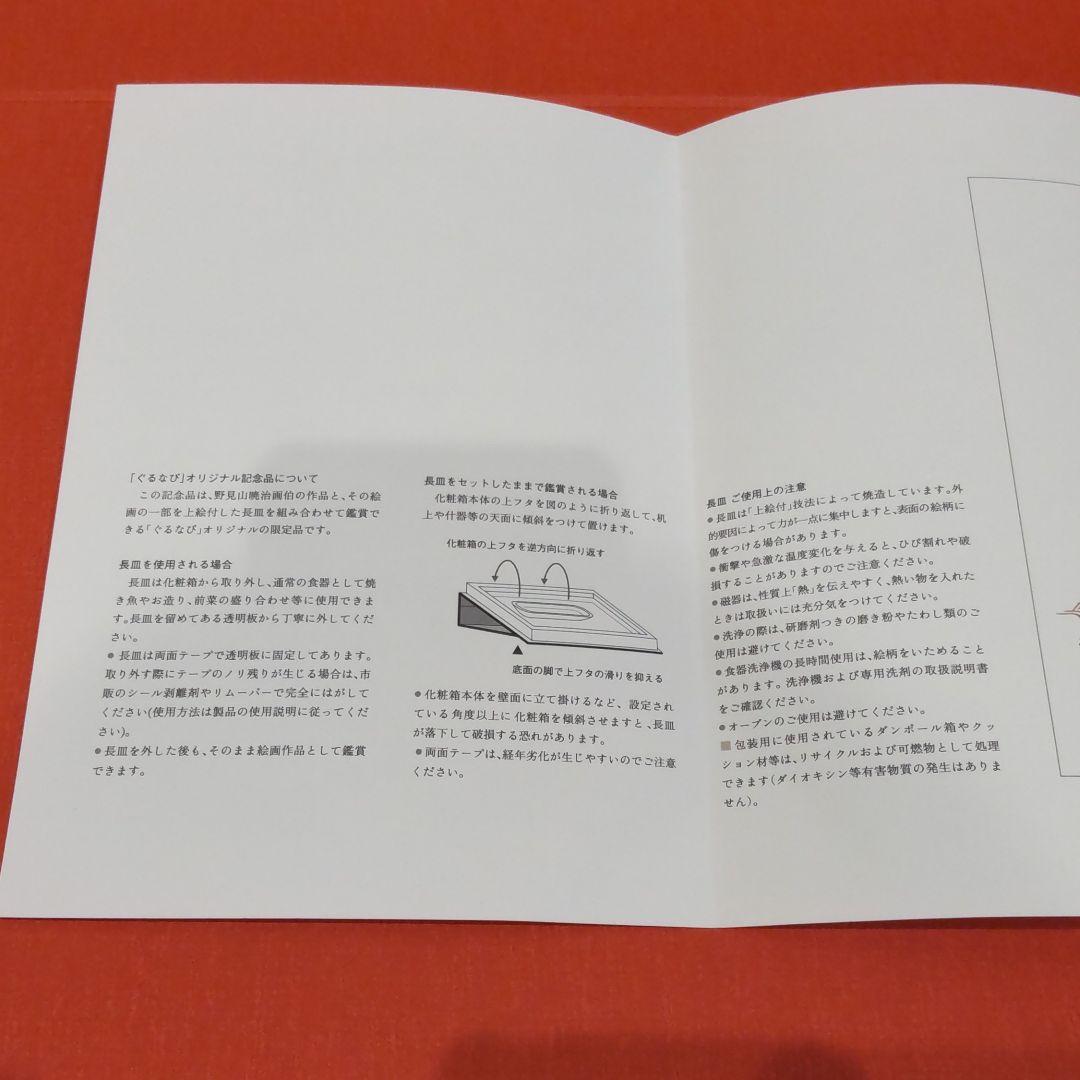 「ぐるなび」オリジナル記念品について
この記念品は、野見山暁治画伯の作品と、その絵
画の一部を上絵付した長皿を組み合わせて鑑賞で
きる「ぐるなび」オリジナルの限定品です。
長皿を使用される場合
長皿は化粧箱から取り外し、通常の食器として焼
き魚やお造り、前菜の盛り合わせ等に使用できま
す。長皿を留めてある透明板から丁寧に外してくだ
さい。
●長皿は両面テープで透明板に固定してあります。
取り外す際にテープのノリ残りが生じる場合は、市
販のシール剥離剤やリムーバーで完全にはがして
ください(使用方法は製品の使用説明に従ってくだ
さい)。
●長皿を外した後も、そのまま絵画作品として鑑賞
できます。
長皿をセットしたままで鑑賞される場合
化粧箱本体の上フタを図のように折り返して、机
上や什器等の天面に傾斜をつけて置けます。
化粧箱の上フタを逆方向に折り返す
底面の脚で上フタの滑りを抑える
●化粧箱本体を壁面に立て掛けるなど、設定され
ている角度以上に化粧箱を傾斜させますと、長皿
が落下して破損する恐れがあります。
●両面テープは、経年劣化が生じやすいのでご注意
ください。
長皿 ご使用上の注意
●長皿は「上絵付」技法によって焼造しています。外
的要因によって力が一点に集中しますと、表面の絵柄に
傷をつける場合があります。
●衝撃や急激な温度変化を与えると、ひび割れや破
損することがありますのでご注意ください。
●磁器は、性質上「熱」を伝えやすく、熱い物を入れた
ときは取扱いには充分気をつけてください。
●洗浄の際は、研磨剤つきの磨き粉やたわし類のご
使用は避けてください。
●食器洗浄機の長時間使用は、絵柄をいためること
があります。洗浄機および専用洗剤の取扱説明書
をご確認ください。
●オーブンのご使用は避けてください。
■包装用に使用されているダンボール箱やクッ
ション材等は、リサイクルおよび可燃物として処理
できます(ダイオキシン等有害物質の発生はありま
せん)。